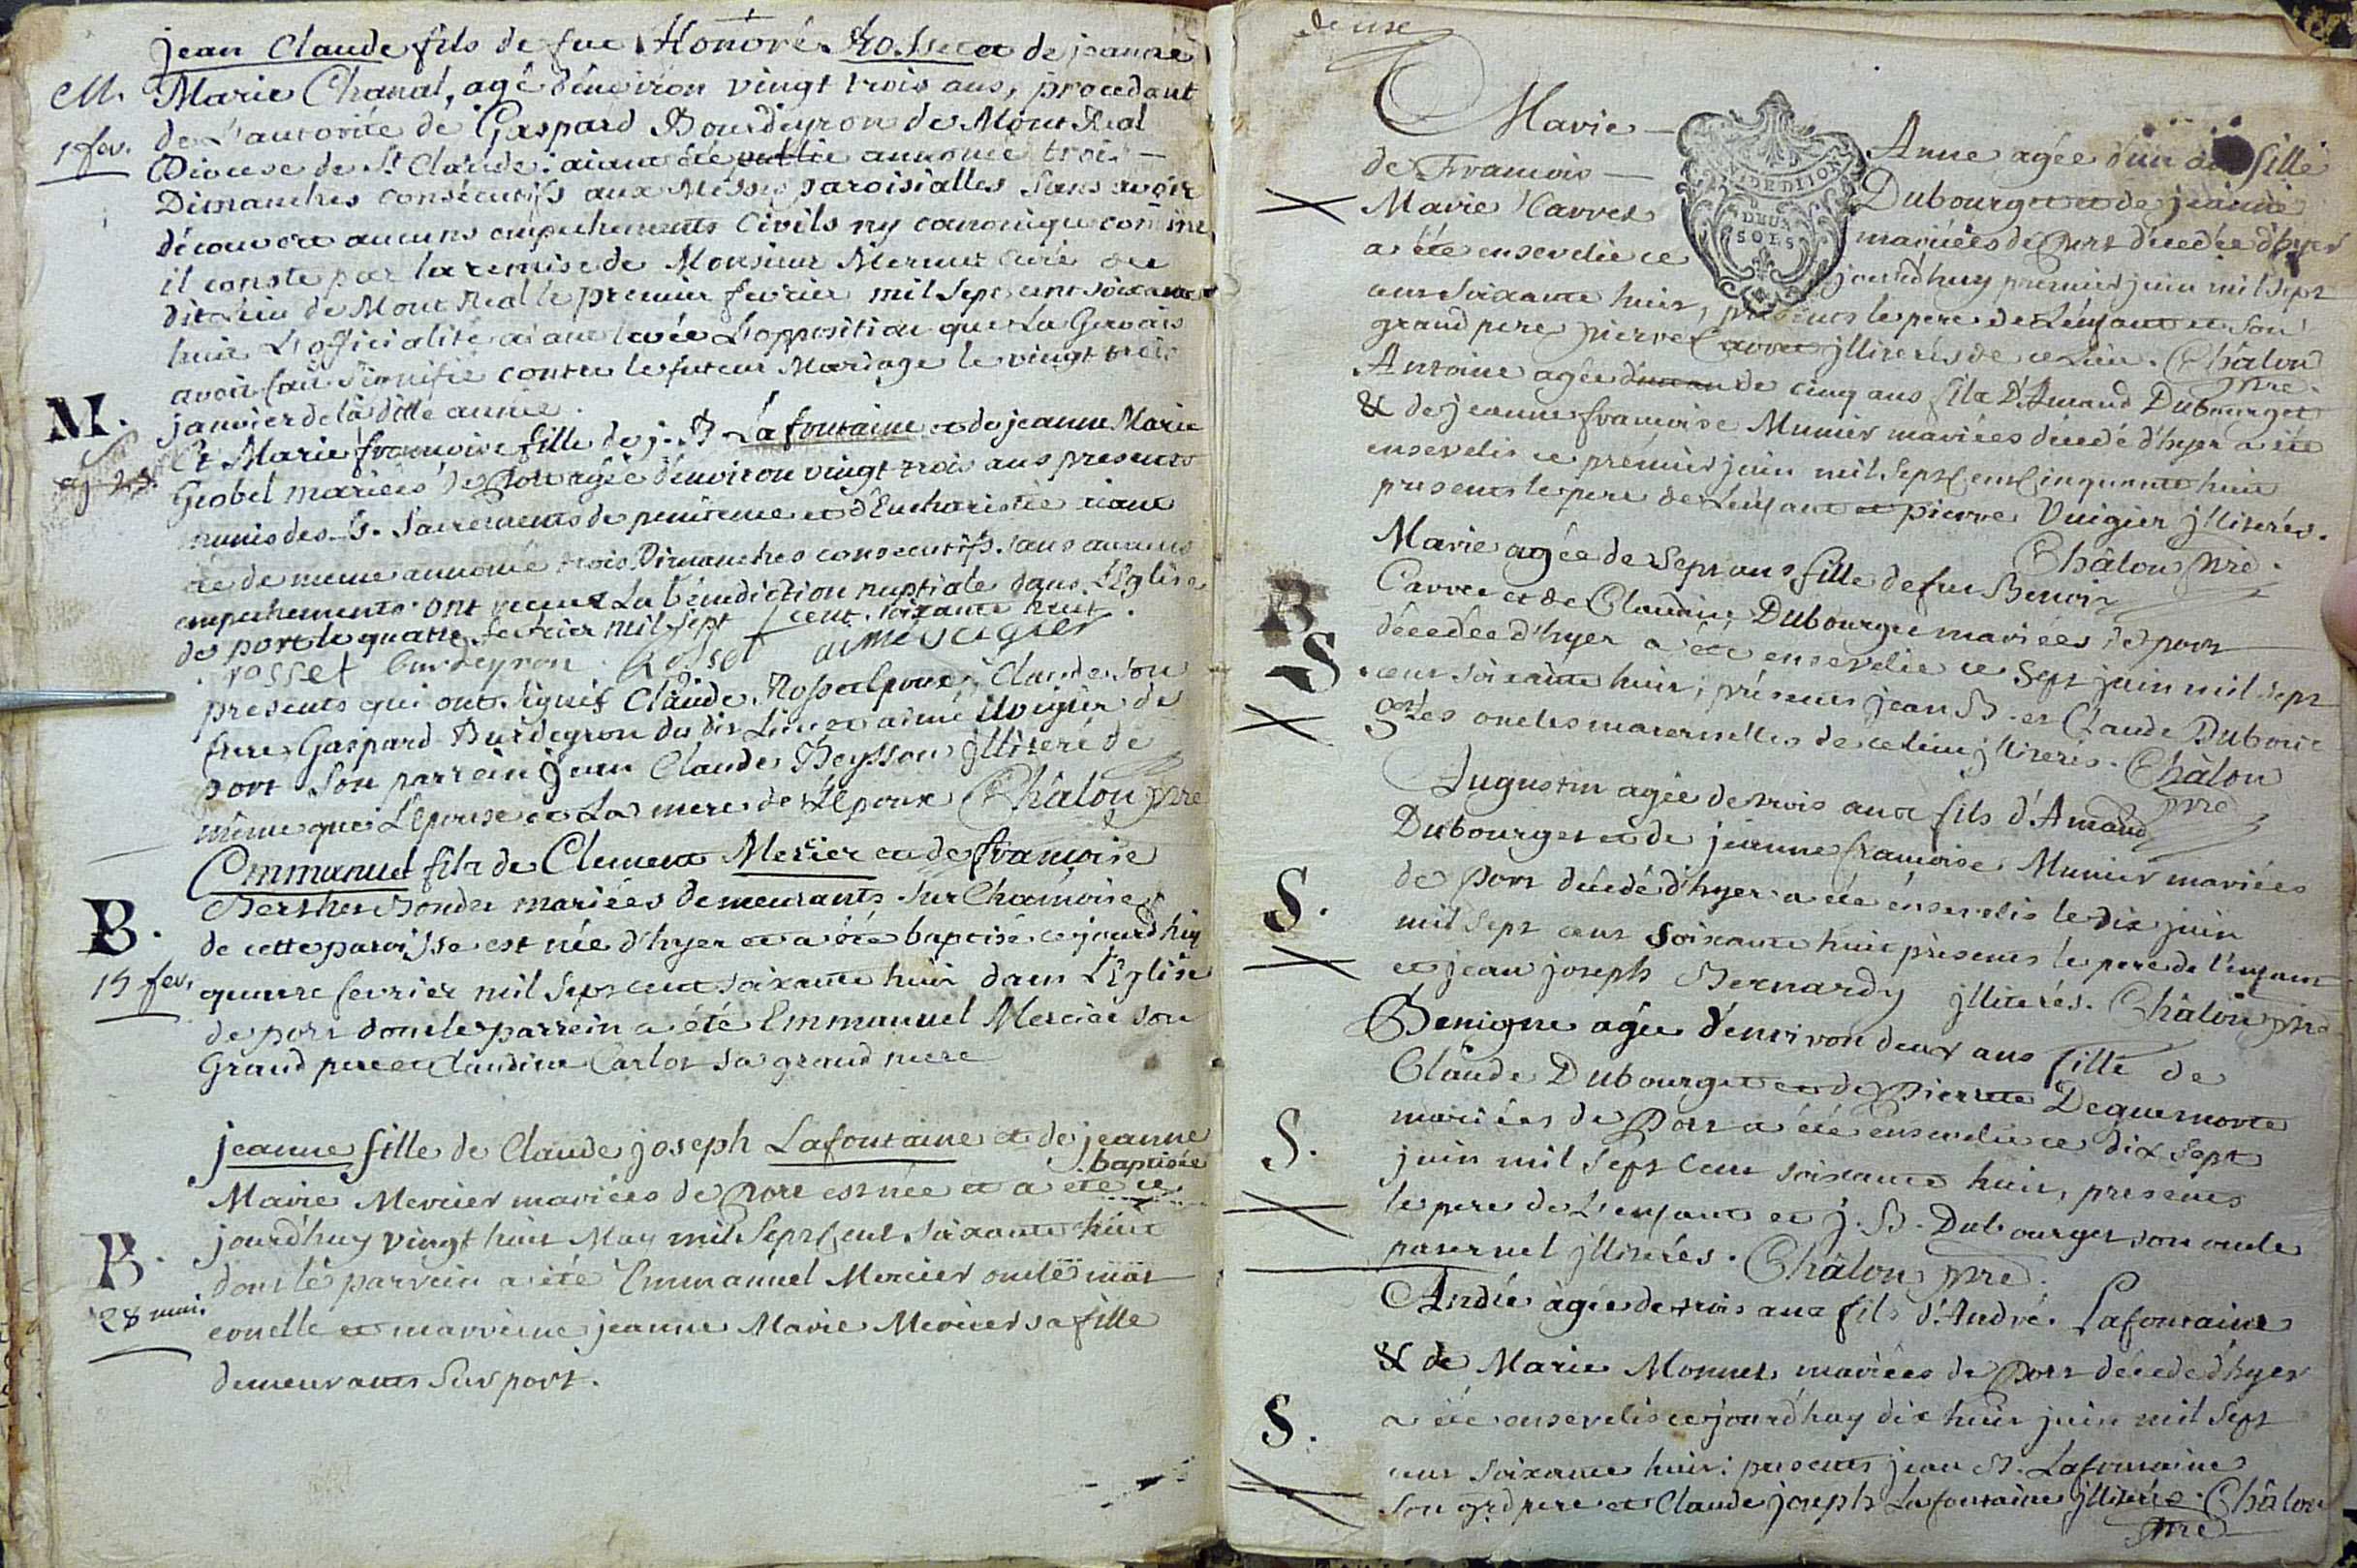 jean Claude fils de fue Honoré Rosset et de jeanne
M. Marie Chanal, agé d'environ vingt trois ans, procedant
1 fev. de L'autorité de Gaspard Bourdeyron de Mont Real
Diocese de St Claude. aiant été publie annoncé trois
Dimanches consécutifs aux Messes paroisialles sans avoir
découvert aucuns empechements Civils ny canonique comme
il conste par la remise de Monsieur Mermet curé du
dit Lieu de Mont Real le premier fevrier mil sept cent soixante
huit L'officialité aiant levée L'opposition que La Gervais
avoit fait signifié contre le futeur Mardage le vingt trois
M. janvier de la ditte année.
Et Marie francoise fille de j. B. Lafontaine et de jeanne Marie
Gobel mariées de Port agée d'environ vingt trois ans presents
munis des S. Sacrements de penitence et d'Eucharistie aiant
été de meme annoncé trois Dimanches consecutifs sans aucuns
empechements ont recus La bénediction nuptiale dans L'Eglise
de port le quatre fevrier mil sept cent soixante huit.
rosset burdeyron Rosset aimé uigier
presents qui ont signés Claude Rosset Epoux, Claude son
frere, Gaspard Burdeyron du dit Lieu et aimé Uvigier de
port son parrein jean Claude Beysson jlliteré de
même que L'Epouse et La mere de L'Epoux Châlon ptre
Emmanuel fils de Clement Mercier et de francoise
Berthet Bondet mariées demeurants sur Chamoise
B. de cette paroisse est née d'hyer et a été baptisé cejourd'huy
15 fev. quinze fevrier mil sept cent soixante huit dans L'Eglise
de port dont le parrein a été Emmanuel Mercier son
Grand pere et Claudine Carlot sa grand mere
jeanne fille de Claude joseph Lafontaine et de jeanne
baptisée
Marie Mercier mariées de Port est née et a été ce
B. jourd'huy vingt huit May mil sept Cent soixante huit
dont le parrein a été Emmanuel Mercier oncle mat
28 mai. ernelle et marreine jeanne Marie Mercier sa fille
demeurants sur port.
deuse
Marie Anne agée d'un an fille
de Francois Dubourget et de jeanne
Marie Carret mariées de Port décedée d'hyer
a été ensevelie ce jourd'huy premier juin mil sept
cent soixante huit, presents le pere de L'enfant et son
grand pere pierre Carret jlliterés de ce Lieu. Châlon ptre.
Antoine agée d'un an de cinq ans fils D'Amand Dubourget
& de jeanne francoise Munier mariées décedé d'hyer a été
ensevelis ce premier juin mil sept Cent Cinquante huit
presents le pere de L'enfant et pierre Vuigier jlliterés.
Châlon ptre.
Marie agée de sept ans fille de fue Benoit
B Carret et de Claudine Dubourget mariées de port
S. décedée d'hyer a été ensevelie ce sept juin mil sept
cent soixante huit, présents jean B. et Claude Dubour
getes oncles maternelles de ce lieu jlliterés. Châlon ptre
Augustin agée de trois ans fils d'Amand
Dubourget et de jeanne francoise Munier mariées
S. de Port décédé d'hyer a été ensevelis le dix juin
mil sept cent soixante huit présents le pere de l'enfant
et jean joseph Bernardy jlliterés. Châlon ptre
Benigne agée d'environ deux ans fille de
Claude Dubourget et de Pierrette Deguemorte
S. mariées de Port a été ensevelie ce dix sept
juin mil sept Cent soixante huit, presents
le pere de L'enfant et j. B. Dubourget son oncle
paternel jlliterés. Châlon ptre.
André agée de trois ans fils d'André Lafontaine
& de Marie Monnet mariées de Port décedé d'hyer
S. a été ensevelis cejourd'huy dix huit juin mil sept
cent soixante huit: presents jean B. Lafontaine
son grd pere et Claude joseph Lafontaine jlliterés. Châlon
ptre
EXPEDITION
DEUX
SOLS